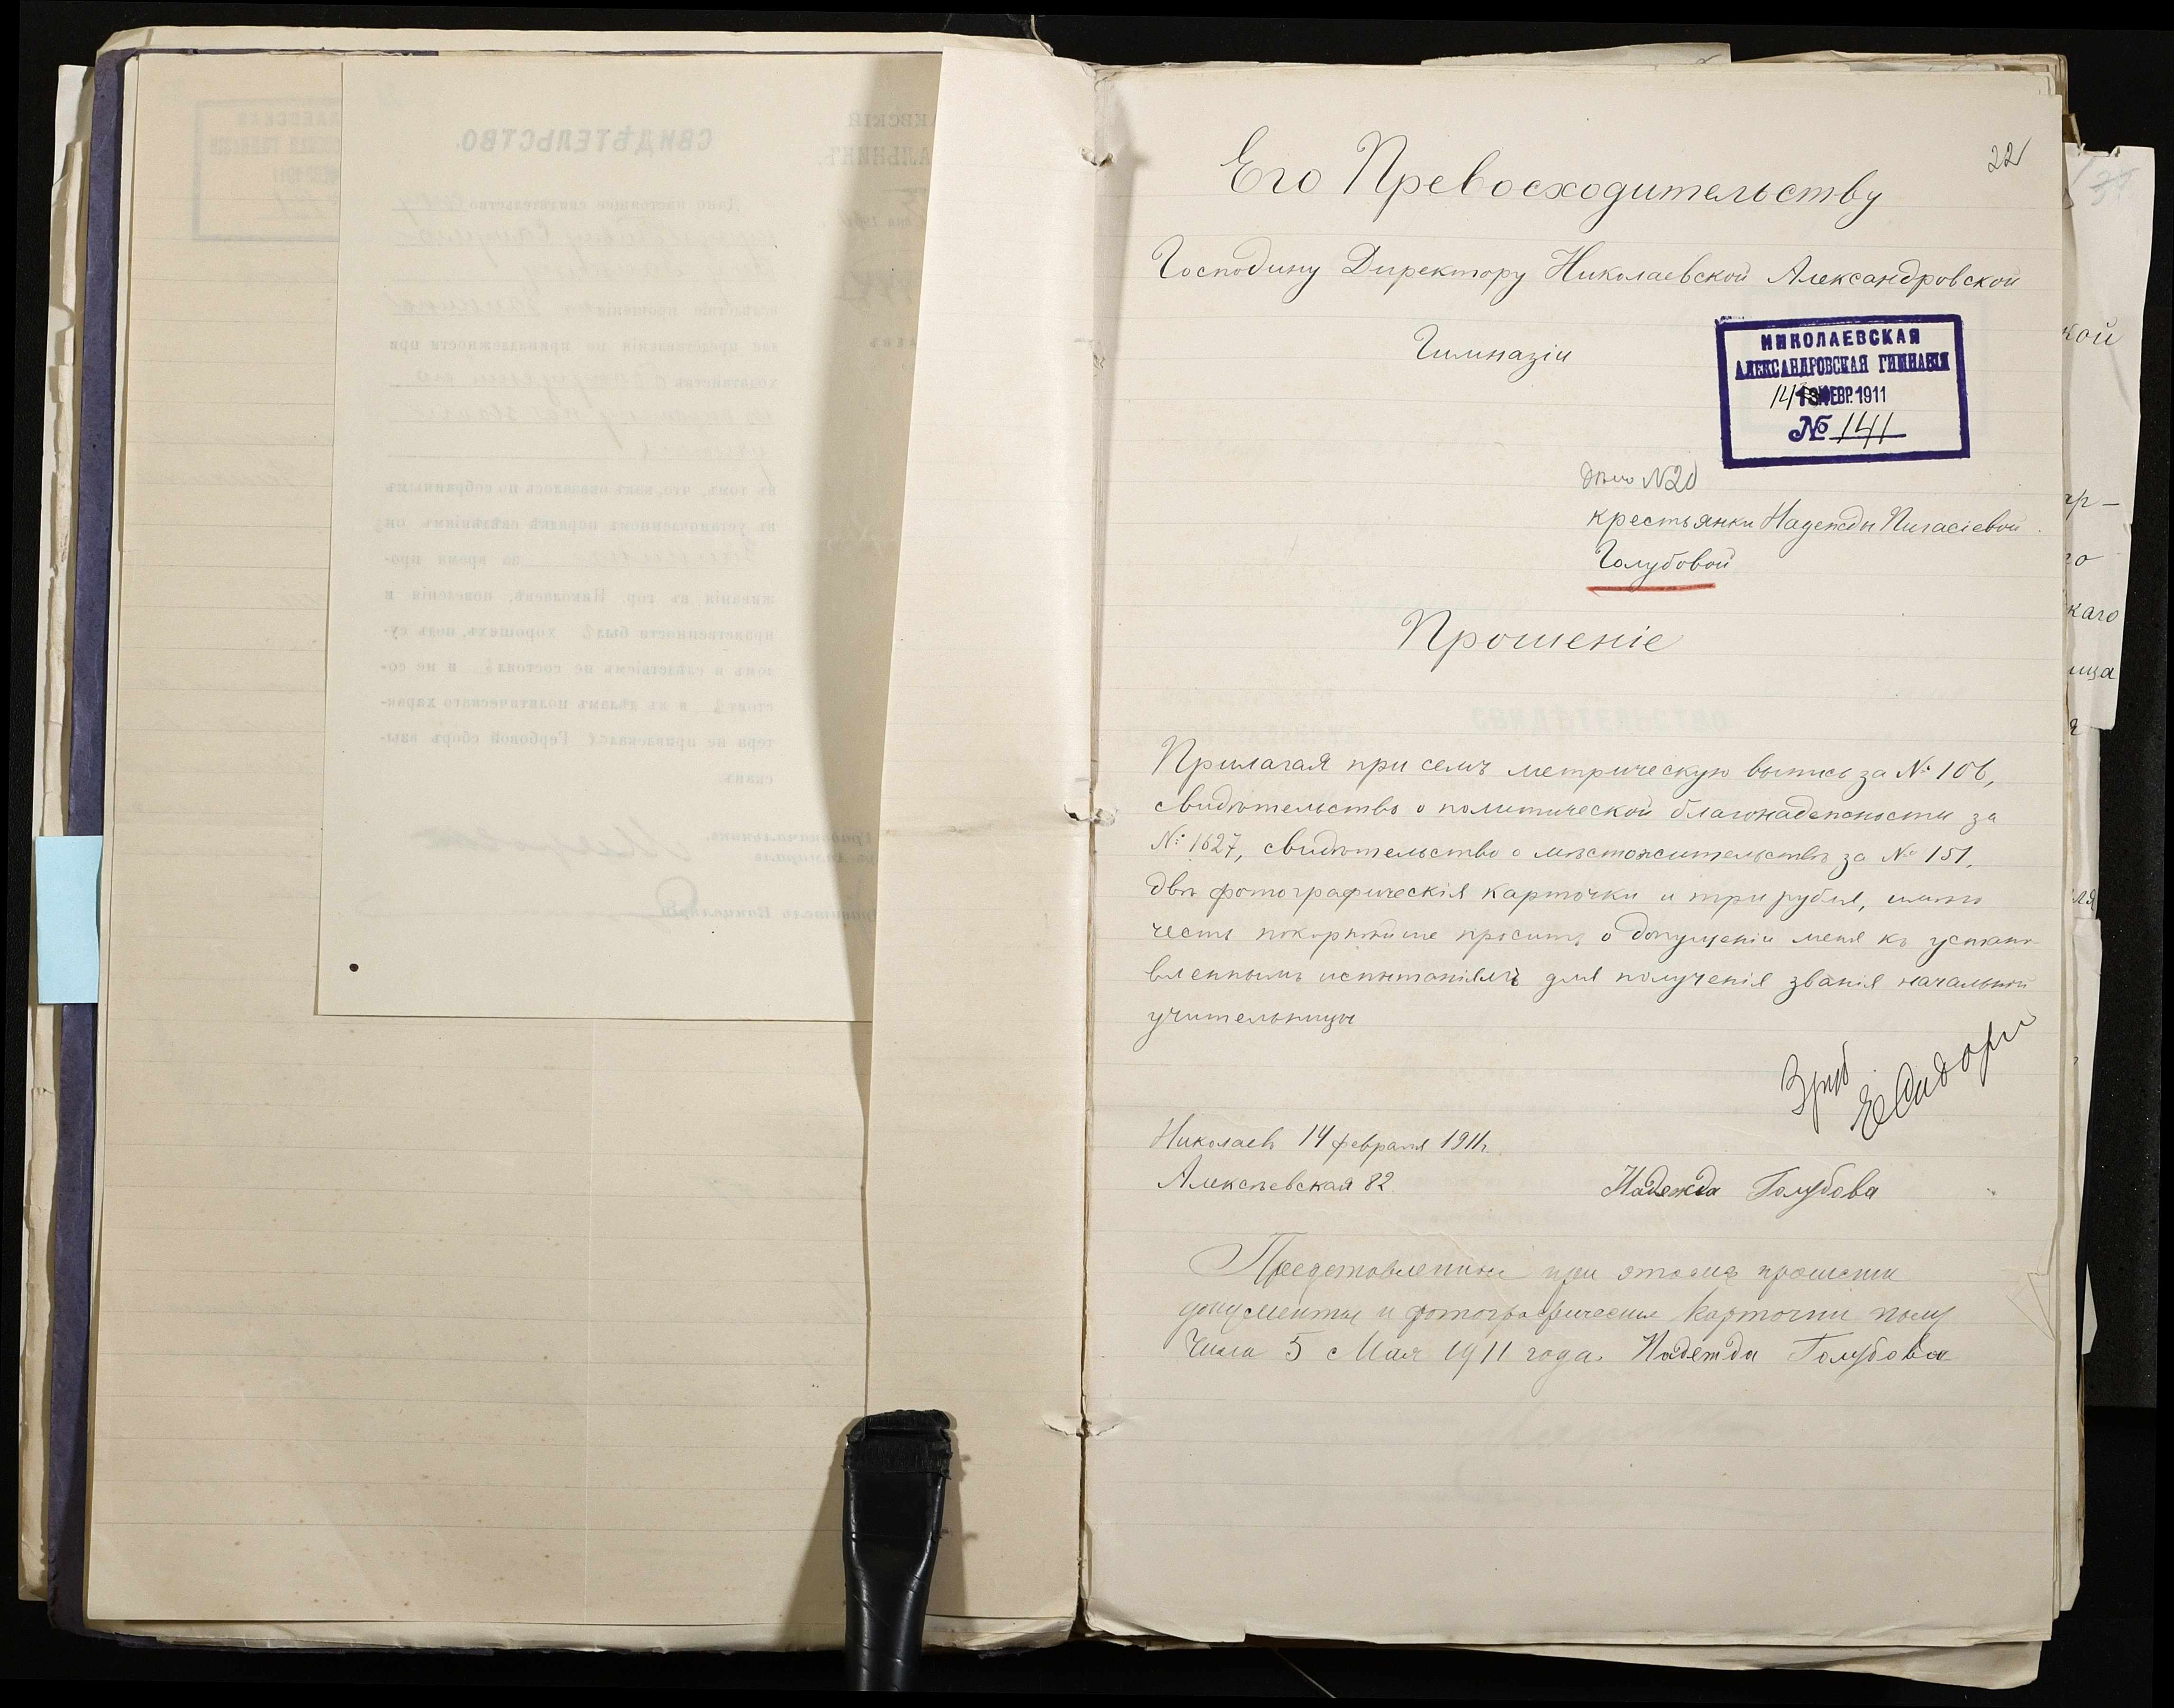 22
Его Превосходительству
Господину Директору Николаевской Александровской
Гимназіи
НИКОЛАЕВСКАЯ
АЛЕКСАНДРОВСКАЯ ГИМНАЗІЯ
14 ФЕВР. 1911
№ 141
дѣло N20
крестьянки Надежды Пигасіевой
Голубовой
Прошеніе
Прилагая при семъ метрическую выпись за № 106,
свидѣтельство о политической благонадежности за
№ 1627, свидѣтельство о мѣстожительствѣ за № 151,
двѣ фотографическія карточки и три рубля, имѣю
честь покорнѣйше просить о допущеніи меня къ устано
вленнымъ испытаніямъ для полученія званія начальной
учительницы
Николаевъ 14 февраля 1911г.
Алексѣевская 82
Надежда Голубова
Представленные при этомъ прошеніи
документы и фотографическія карточки полу
чила 5 Мая 1911 года. Надежда Голубова
СВИДѢТЕЛЬСТВО.
Дано настоящее свидѣтельство
для представленія по принадлежности при
ходатайствѣ
въ томъ, что, какъ оказалось по собраннымъ
въ установленномъ порядкѣ свѣдѣніямъ он
за время про-
живанія въ гор. Николаевѣ, поведенія и
нравственности былъ хорошихъ, подъ су-
домъ и слѣдствіемъ не состоялъ и не со-
стоитъ, и къ дѣламъ политическаго харак-
тера не привлекался. Гербовой сборъ взы-
сканъ.
Градоначальникъ,